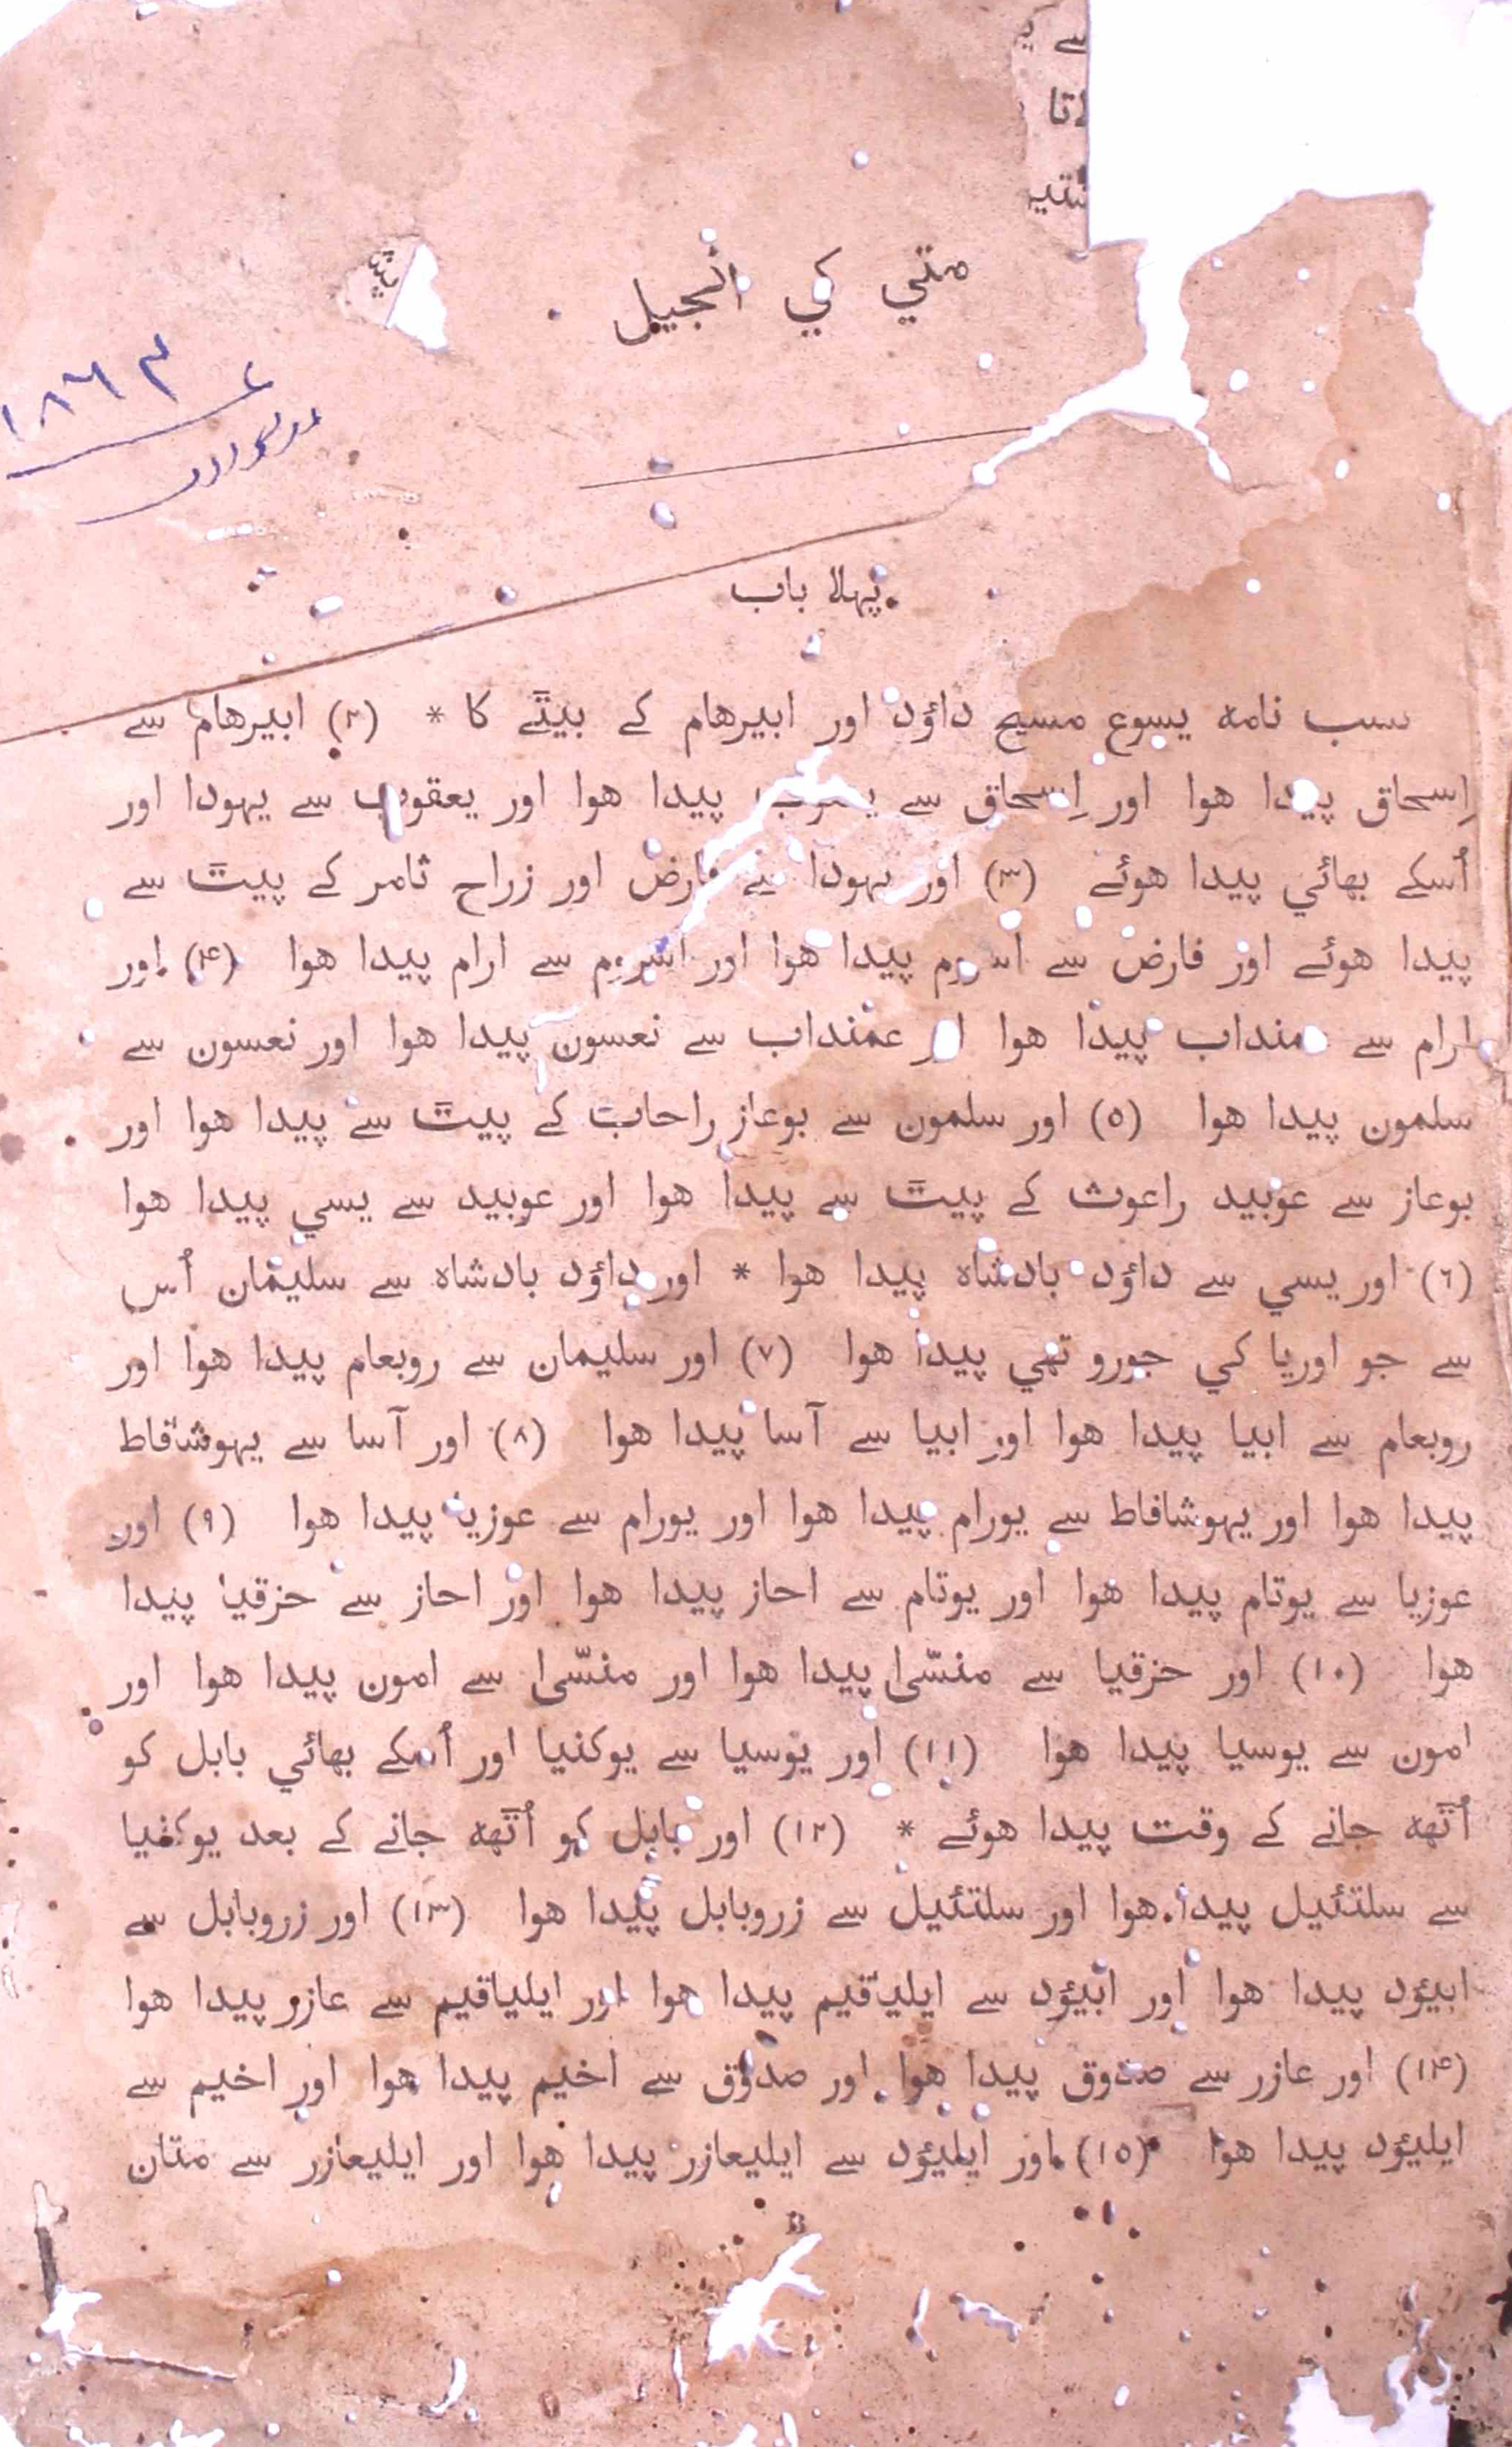 متي کي انجيل
۱۸۶۳
پہلا باب
نسب نامه يسوع مسيح داؤد اور ابيرهام کے بيٹے کا * (۲) ابيرهام سے
اِسحاق پيدا هوا اور اِسحاق سے يعقوب پيدا هوا اور يعقوب سے يہودا اور
اُسکے بھائي پيدا هوئے (۳) اور يہودا سے فارض اور زراح ثامر کے پيٹ سے
پيدا هوئے اور فارض سے اسروم پيدا هوا اور اسروم سے ارام پيدا هوا (۴) اور
ارام سے عمنداب پيدا هوا اور عمنداب سے نعسون پيدا هوا اور نعسون سے
سلمون پيدا هوا (۵) اور سلمون سے بوعاز راحاب کے پيٹ سے پيدا هوا اور
بوعاز سے عوبيد راعوث کے پيٹ سے پيدا هوا اور عوبيد سے يسي پيدا هوا
(۶) اور يسي سے داؤد بادشاه پيدا هوا * اور داؤد بادشاه سے سليمان اُس
سے جو اوريا کي جورو تھي پيدا هوا (۷) اور سليمان سے روبعام پيدا هوا اور
روبعام سے ابيا پيدا هوا اور ابيا سے آسا پيدا هوا (۸) اور آسا سے يہوشافاط
پيدا هوا اور يہوشافاط سے يورام پيدا هوا اور يورام سے عوزيا پيدا هوا (۹) اور
عوزيا سے يوتام پيدا هوا اور يوتام سے احاز پيدا هوا اور احاز سے حزقيا پيدا
هوا (۱۰) اور حزقيا سے منسّیٰ پيدا هوا اور منسّیٰ سے امون پيدا هوا اور
امون سے يوسيا پيدا هوا (۱۱) اور يوسيا سے يوکنيا اور اُسکے بھائي بابل کو
اُٹھه جانے کے وقت پيدا هوئے * (۱۲) اور بابل کو اُٹھه جانے کے بعد يوکنيا
سے سلتئيل پيدا هوا اور سلتئيل سے زروبابل پيدا هوا (۱۳) اور زروبابل سے
ابيؤد پيدا هوا اور ابيؤد سے ايلياقيم پيدا هوا اور ايلياقيم سے عازر پيدا هوا
(۱۴) اور عازر سے صدوق پيدا هوا اور صدوق سے اخيم پيدا هوا اور اخيم سے
ايليؤد پيدا هوا (۱۵) اور ايليؤد سے ايليعازر پيدا هوا اور ايليعازر سے متان
B